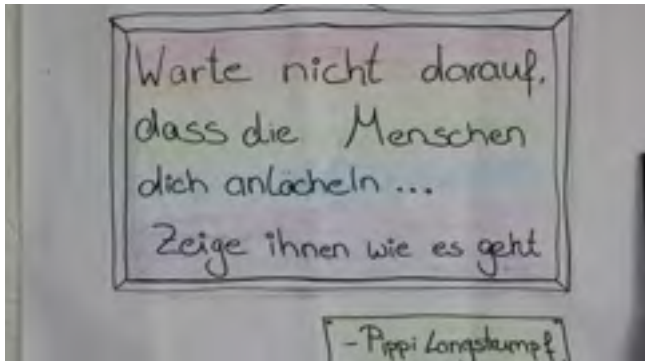 Warte nicht darauf,
dass die Menschen
dich anlächeln ...
Zeige ihnen wie es geht
- Pippi Langstrumpf